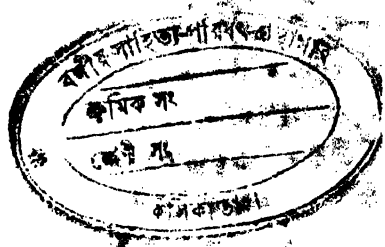 বঙ্গীয় সাহিত্য-পরিষৎ-গ্রন্থাগার
ক্রমিক সং
শ্রেণী সং
কলিকাতা।